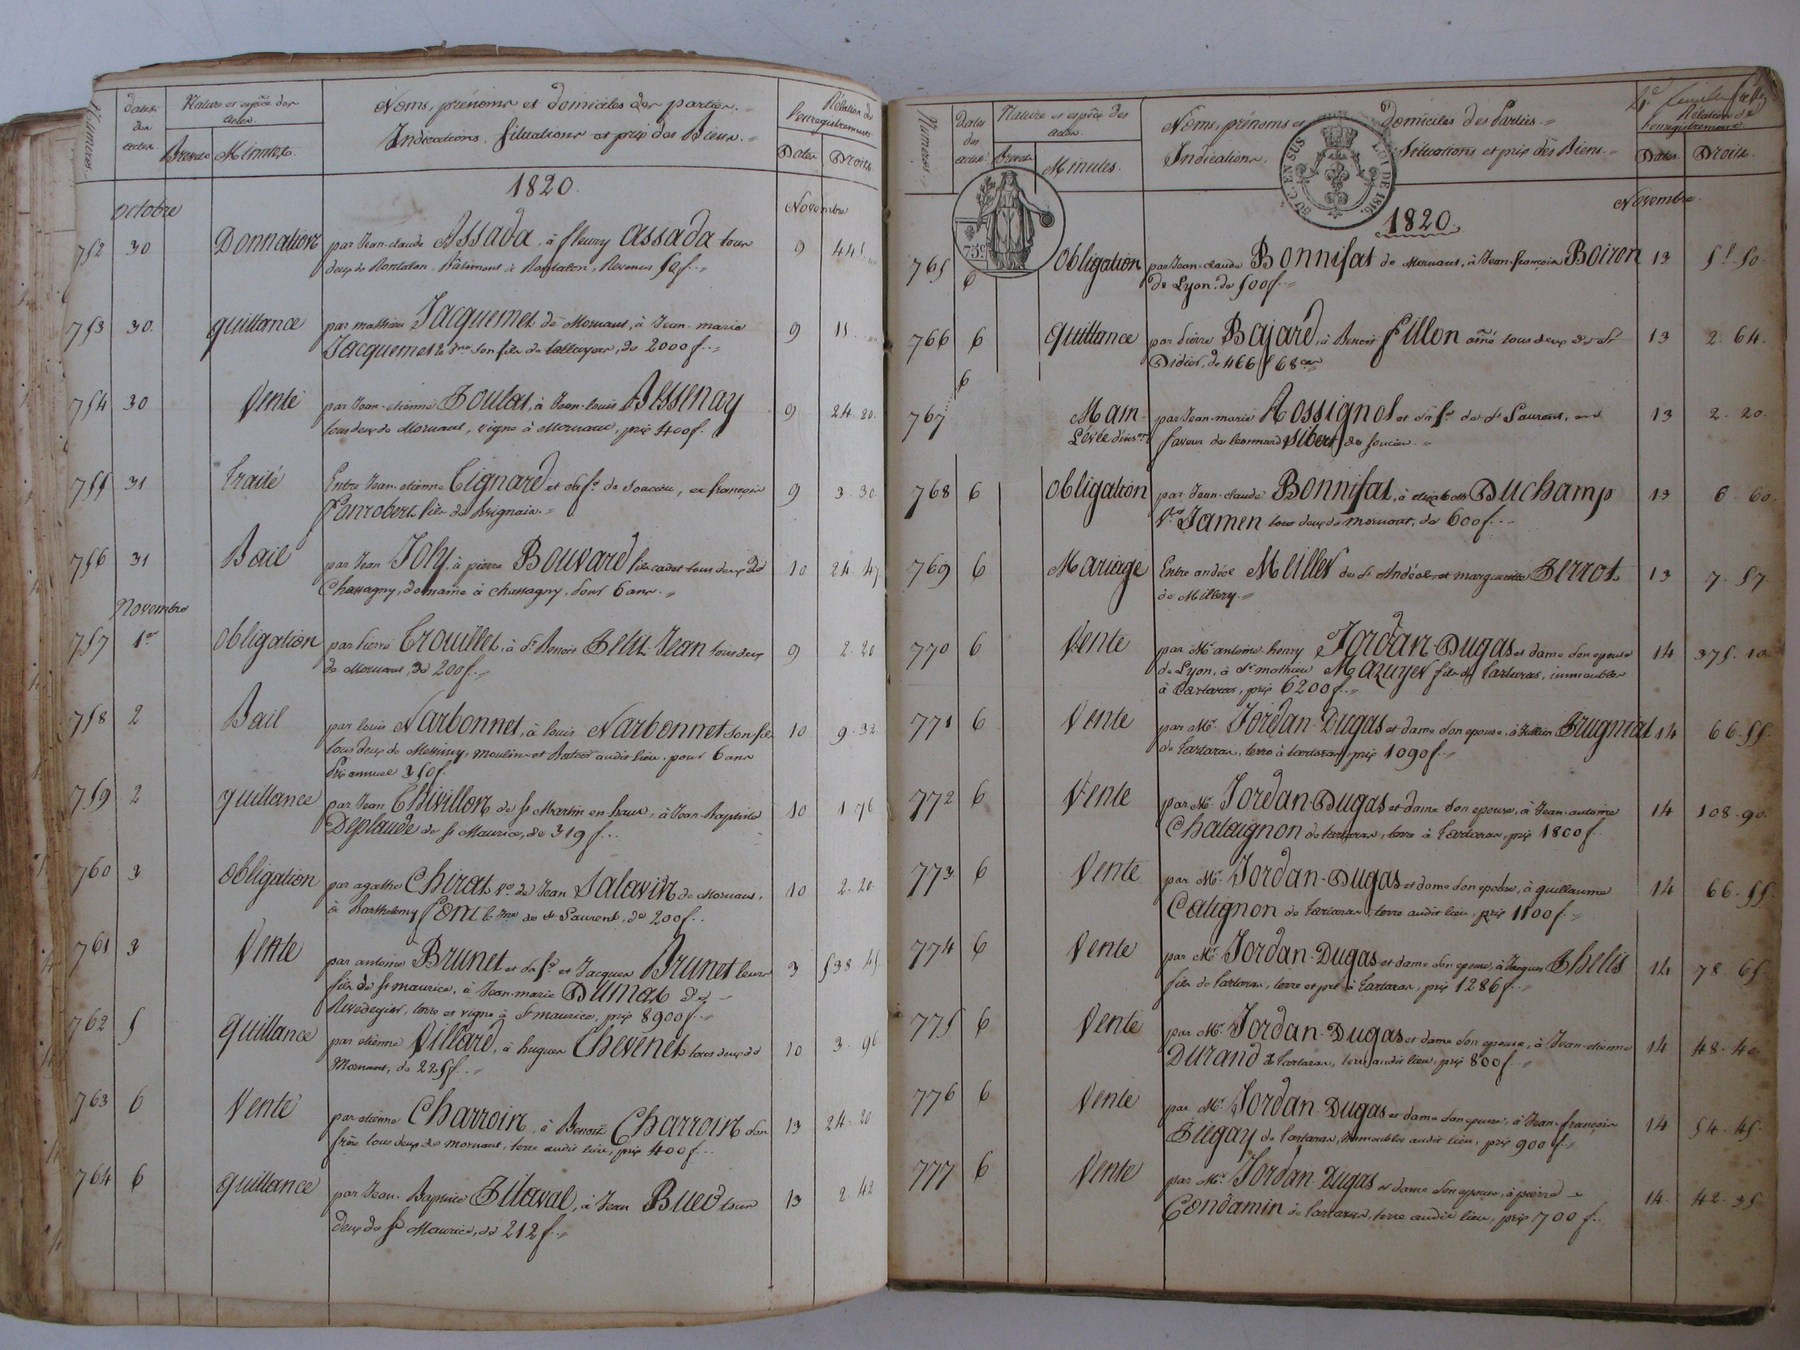 Numéros.
Dates des actes.
Nature et espèce des actes.
Brevets Minutes.
Noms, prénoms et domiciles des parties.
Indications, situations et prix des Biens.
Relation de l'enregistrement.
Dates Droits
1820.
octobre
Novembre
752 30 Donnation par Jean-claude Assada, à fleury Assada tous 9 
deux de Rontalon. Bâtiment à Rontalon, Revenus 
753 30 quittance par mathieu Jacquemet de Mornant, à Jean-marie 9 11
Jacquemet son fils de taluyers, de 2000 f.
754 30 Vente par Jean-etienne Poulat, à Jean-louis Bessenay 9 24.20
tous deux de Mornant, vigne à Mornant, prix 400 f.
755 31 traité Entre Jean-etienne Tignard et sa fe. de Soucieu, et françois 9 3.30
fils de Brignais.
756 31 Bail par Jean Joly, à pierre Bouvard fils cadet tous deux de 10 24.47
Chassagny, domaine à chassagny, pour 6 ans.
Novembre
757 1er obligation par pierre Crouillet, à st. Benoit Petit Jean tous deux 9 2.20
de Mornant, de 200 f.
758 2 Bail par louis Narbonnet, à louis Narbonnet son fils 10 9.32
tous deux de Messimy, moulin et audit lieu, pour 6 ans
Prix annuel 350 f.
759 2 quittance par Jean Chivillon de st Martin en haut, à Jean-Baptiste 10 1.76
Desplaude de st Maurice, de 319 f.
760 3 obligation par agathe Chirat ve. de Jean Salavin de Mornant, 10 2.20
à Barthelemy font de st Laurent, de 200 f.
761 3 Vente par antoine Brunet et sa fe. et Jacques Brunet leur 3 538.45
fils de st maurice, à Jean-marie Dumas de
Rivedegier, terre et vigne à st maurice, prix 8900 f.
762 5 quittance par etienne Villard, à hugues Chevenet tous deux de 10 3.96
Mornant, de 225 f.
763 6 Vente par etienne Charroin, à Benoit Charroin son 13 24.20
frère tous deux de mornant, terre audit lieu, prix 400 f.
764 6 quittance par Jean-Baptiste Pitaval, à Jean Bued tous 13 2.42
deux de st Maurice, de 212 f.
Numéros.
Dates des actes.
Nature et espèce des actes.
Brevets Minutes.
Noms, prénoms et Domiciles des Parties.
Indications, Situations et prix des Biens.
Relation de l'enregistrement.
Dates Droits.
EN SUS LOI DE 1816.
75c.
Novembre
1820.
765 6 obligation par Jean-claude Bonnifat de Mornant, à Jean-françois Boiron 13 5f.50
de Lyon, de 500 f.
766 6 Quittance par pierre Bajard, à Benoit fillon ainé tous deux de st 13 2.64.
Didier, de 466 f 68 ces
767 6 Main par Jean-marie Rossignol et sa fe. de st Laurent, en 13 2.20.
Levée d'insn. faveur de leonnard Sibert de soucieu.
768 6 obligation par Jean-claude Bonnifat, à elizabeth Duchamp 13 6.60.
ve. Jamen tous deux de mornant, de 600 f.
769 6 Mariage Entre andéol Millet de st Andéol et marguerite Perrot 13 7.57
de Millery.
770 6 Vente par Mr. antoine-henry Jordan-Dugas et dame son epouse 14 375.10
de Lyon, à st. mathieu Mazuyer fils de tartaras, immeubles
à tartaras, prix 6200 f.
771 6 Vente par Mr. Jordan-Dugas et dame son epouse, à Brugnat 14 66.55.
de tartaras, terre à tartaras, prix 1090 f.
772 6 Vente par Mr. Jordan-Dugas et dame son epouse, à Jean-antoine 14 108.90.
Chataignon de tartaras, terre à tartaras, prix 1800 f.
773 6 Vente par Mr. Jordan-Dugas et dame son epouse, à guillaume 14 66.55.
Catignon de tartaras, terre audit lieu, prix 1100 f.
774 6 Vente par Mr. Jordan-Dugas et dame son epouse, à Jacques Thelis 14 78.65.
fils de tartaras, terre et pré à tartaras, prix 1286 f.
775 6 Vente par Mr. Jordan-Dugas et dame son epouse, à Jean-etienne 14 48.40
Durand de tartaras, terre audit lieu, prix 800 f.
776 6 Vente par Mr. Jordan-Dugas et dame son epouse, à Jean-françois 14 54.45.
de tartaras, immeubles audit lieu, prix 900 f.
777 6 Vente par Mr. Jordan-Dugas et dame son epouse, à pierre 14. 42.35.
Condamin de tartaras, terre audit lieu, prix 700 f.